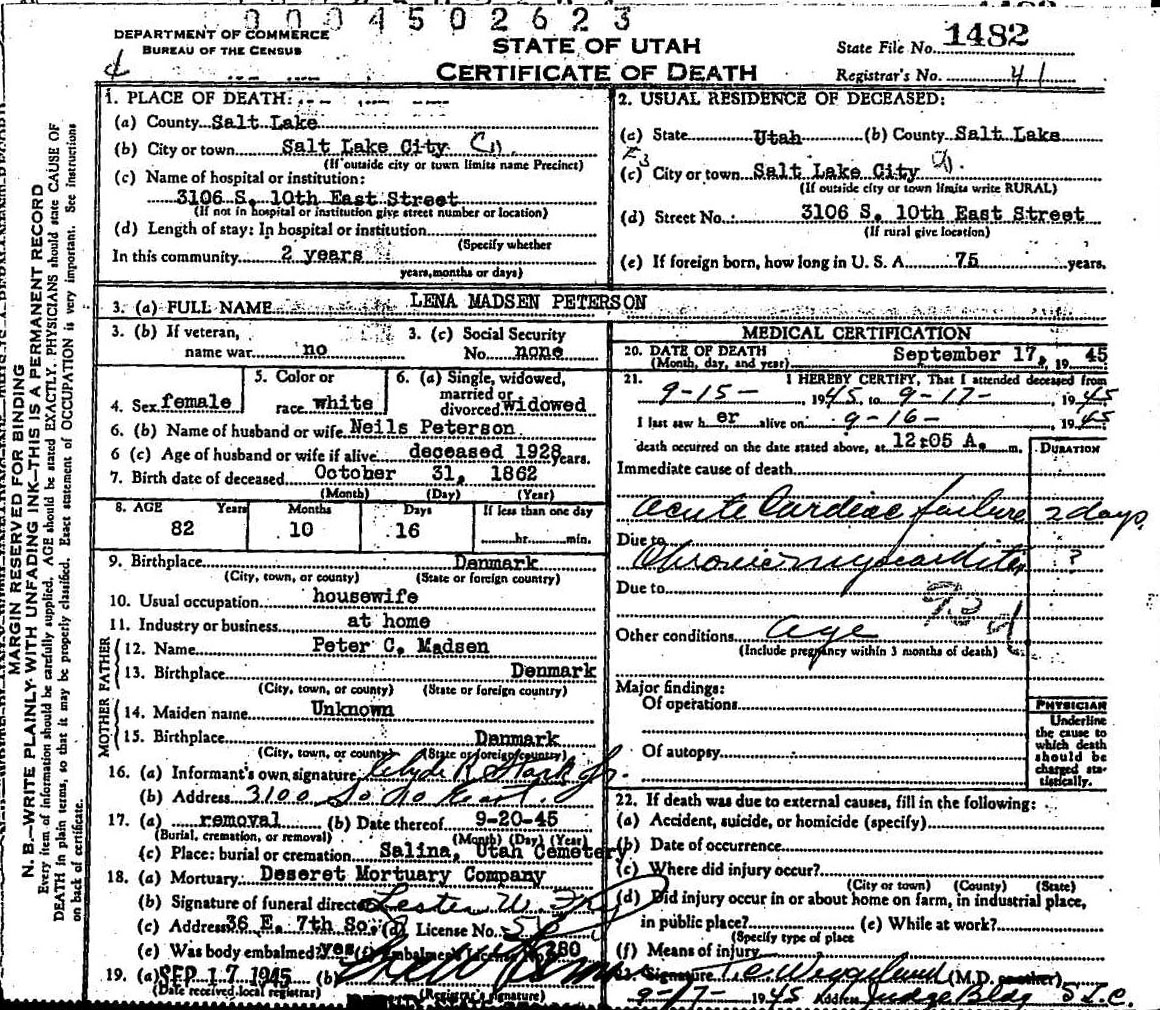 0004502623
DEPARTMENT OF COMMERCE
BUREAU OF THE CENSUS
STATE OF UTAH
CERTIFICATE OF DEATH
State File No. 1482
Registrar's No. 41
MARGIN RESERVED FOR BINDING
N. B.—WRITE PLAINLY WITH UNFADING INK—THIS IS A PERMANENT RECORD
Every item of information should be carefully supplied. AGE should be stated EXACTLY. PHYSICIANS should state CAUSE OF
DEATH in plain terms, so that it may be properly classified. Exact statement of OCCUPATION is very important. See instructions
on back of certificate.
1. PLACE OF DEATH:
(a) County Salt Lake
(b) City or town Salt Lake City
(If outside city or town limits name Precinct)
(c) Name of hospital or institution:
3106 S. 10th East Street
(If not in hospital or institution give street number or location)
(d) Length of stay: In hospital or institution
(Specify whether
In this community 2 years
years, months or days)
2. USUAL RESIDENCE OF DECEASED:
(a) State Utah (b) County Salt Lake
(c) City or town Salt Lake City
(If outside city or town limits write RURAL)
(d) Street No. 3106 S. 10th East Street
(If rural give location)
(e) If foreign born, how long in U. S. A. 75 years.
3. (a) FULL NAME LENA MADSEN PETERSON
3. (b) If veteran, name war no
3. (c) Social Security No. none
4. Sex female
5. Color or race white
6. (a) Single, widowed, married or divorced widowed
6. (b) Name of husband or wife Neils Peterson
6 (c) Age of husband or wife if alive deceased 1928 years.
7. Birth date of deceased October 31, 1862
(Month) (Day) (Year)
8. AGE Years Months Days If less than one day
82 10 16 hr. min.
9. Birthplace Denmark
(City, town, or county) (State or foreign country)
10. Usual occupation housewife
11. Industry or business at home
FATHER
12. Name Peter C. Madsen
13. Birthplace Denmark
(City, town, or county) (State or foreign country)
MOTHER
14. Maiden name Unknown
15. Birthplace Denmark
(City, town, or county) (State or foreign country)
16. (a) Informant's own signature Clyde R Stark Jr.
(b) Address 3100 So 10 East
17. (a) removal (b) Date thereof 9-20-45
(Burial, cremation, or removal) (Month) (Day) (Year)
(c) Place: burial or cremation Salina, Utah Cemetery
18. (a) Mortuary Deseret Mortuary Company
(b) Signature of funeral director Lester W.
(c) Address 36 E. 7th So. (d) License No.
(e) Was body embalmed? yes (f) Embalmer's License No. 280
19. (a) SEP 17 1945 (b)
(Date received local registrar) (Registrar's signature)
MEDICAL CERTIFICATION
20. DATE OF DEATH September 17, 1945
(Month, day, and year)
21. I HEREBY CERTIFY, That I attended deceased from
9-15- 1945 to 9-17- 1945
I last saw her alive on 9-16- 1945
death occurred on the date stated above, at 12:05 A. m.
DURATION
Immediate cause of death
Acute Cardiac failure 2 days
Due to
Chronic myocarditis ?
Due to
93d
Other conditions age
(Include pregnancy within 3 months of death)
Major findings:
Of operations
Of autopsy
PHYSICIAN
Underline
the cause to
which death
should be
charged sta-
tistically.
22. If death was due to external causes, fill in the following:
(a) Accident, suicide, or homicide (specify)
(b) Date of occurrence
(c) Where did injury occur?
(City or town) (County) (State)
(d) Did injury occur in or about home on farm, in industrial place,
in public place? (e) While at work?
(Specify type of place
(f) Means of injury
23. Signature (M.D. or other)
9-17- 1945 Address Judge Bldg S L C.